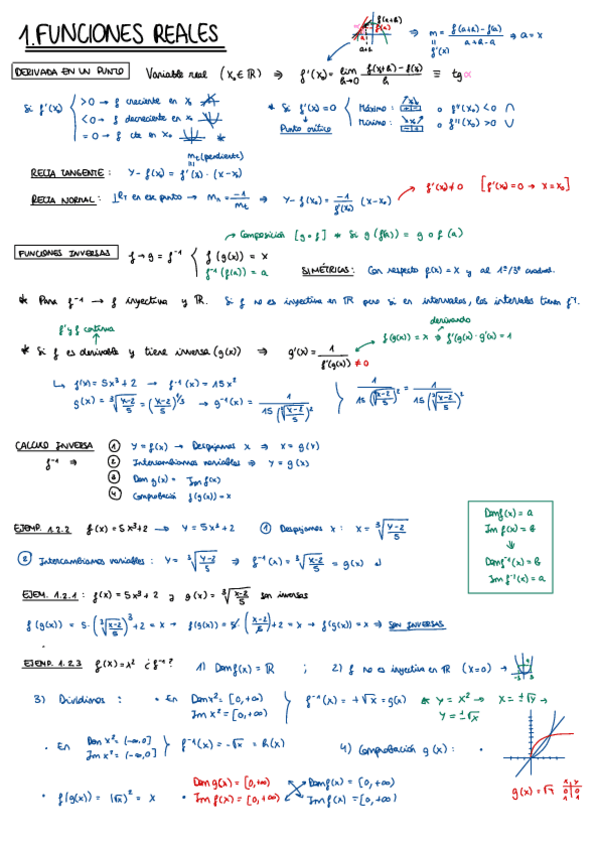 1. FUNCIONES REALES
f(a+h)
f(a)
a+h
m = f(a+h) - f(a) / a+h-a → a = x
f'(x)
DERIVADA EN UN PUNTO Variable real (x₀ ∈ ℝ) ⇒ f'(x₀) = lim h→0 f(x+h) - f(x) / h ≡ tg α
Si f'(x₀) > 0 → f creciente en x₀
< 0 → f decreciente en x₀
= 0 → f cte en x₀ *
* Si f'(x₀) = 0
Punto crítico
Máximo: o f''(x₀) < 0 ∩
Mínimo: o f''(x₀) > 0 ∪
mt (pendiente)
RECTA TANGENTE: y - f(x₀) = f'(x₀) · (x - x₀)
RECTA NORMAL: ⊥ RT en ese punto → mn = -1/mt ⇒ y - f(x₀) = -1/f'(x₀) (x - x₀) → f'(x₀) ≠ 0 [f'(x₀) = 0 → x = x₀]
Composición [g∘f] * Si g(f(a)) = g∘f(a)
FUNCIONES INVERSAS f → g = f⁻¹ f(g(x)) = x
f⁻¹(f(a)) = a
SIMÉTRICAS: Con respecto f(x) = x y al 1º/3º cuadrad.
* Para f⁻¹ → f inyectiva y ℝ. Si f no es inyectiva en ℝ pero si en intervalos, los intervalos tienen f⁻¹.
f' y f continua
* Si f es derivable y tiene inversa (g(x)) ⇒ g'(x) = 1 / f'(g(x)) ≠ 0
derivando
f(g(x)) = x ⇒ f'(g(x)) · g'(x) = 1
↳ f(x) = 5x³ + 2 → f⁻¹(x) = 15x²
g(x) = ³√(x-2/5) = (x-2/5)^1/3 → g⁻¹(x) = 1 / 15(³√(x-2/5))²
1 / 15(³√(x-2/5))² = 1 / 15(³√(x-2/5))²
CALCULO INVERSA ① y = f(x) → Despejamos x ⇒ x = g(y)
f⁻¹ ⇒ ② Intercambiamos variables ⇒ y = g(x)
③ Dom g(x) = Im f(x)
④ Comprobación f(g(x)) = x
Dom f(x) = a
Im f(x) = b
↓
Dom f⁻¹(x) = b
Im f⁻¹(x) = a
EJEMP. 1.2.2 f(x) = 5x³+2 → y = 5x³+2 ① Despejamos x: x = ³√(y-2/5)
② Intercambiamos variables: y = ³√(x-2/5) ⇒ f⁻¹(x) = ³√(x-2/5) = g(x)
EJEM. 1.2.1: f(x) = 5x³ + 2 y g(x) = ³√(x-2/5) son inversas
f(g(x)) = 5·(³√(x-2/5))³ + 2 = x → f(g(x)) = 5·(x-2/5) + 2 = x → f(g(x)) = x ⇒ SON INVERSAS
EJEMP. 1.2.3 f(x) = x² ¿f⁻¹? 1) Dom f(x) = ℝ ; 2) f no es inyectiva en ℝ (x=0) →
3) Dividimos: • En Dom x² = [0,+∞)
Im x² = [0,+∞)
f⁻¹(x) = +√x = g(x) * y = x² → x = ±√y →
y = ±√x
• En Dom x² = (-∞,0]
Im x² = (-∞,0]
f⁻¹(x) = -√x = h(x) 4) Comprobación g(x):
• f(g(x)) = (√x)² = x
Dom g(x) = [0,+∞) Dom f(x) = [0,+∞)
Im f(x) = [0,+∞) Im f(x) = [0,+∞)
g(x) = √x
x y
0 0
1 1